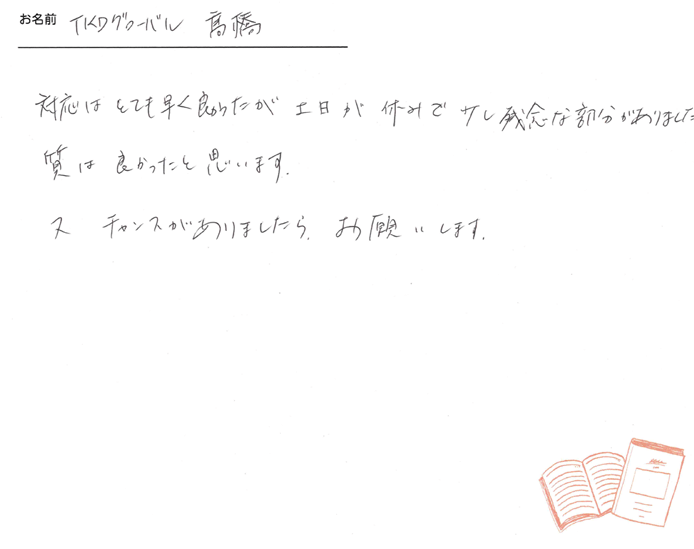 お名前 TKDグローバル 髙橋
対応はとても早く良かったが 土日が 休みで 少し残念な部分がありました
質は 良かったと思います.
又 チャンスがありましたら、お願いします.